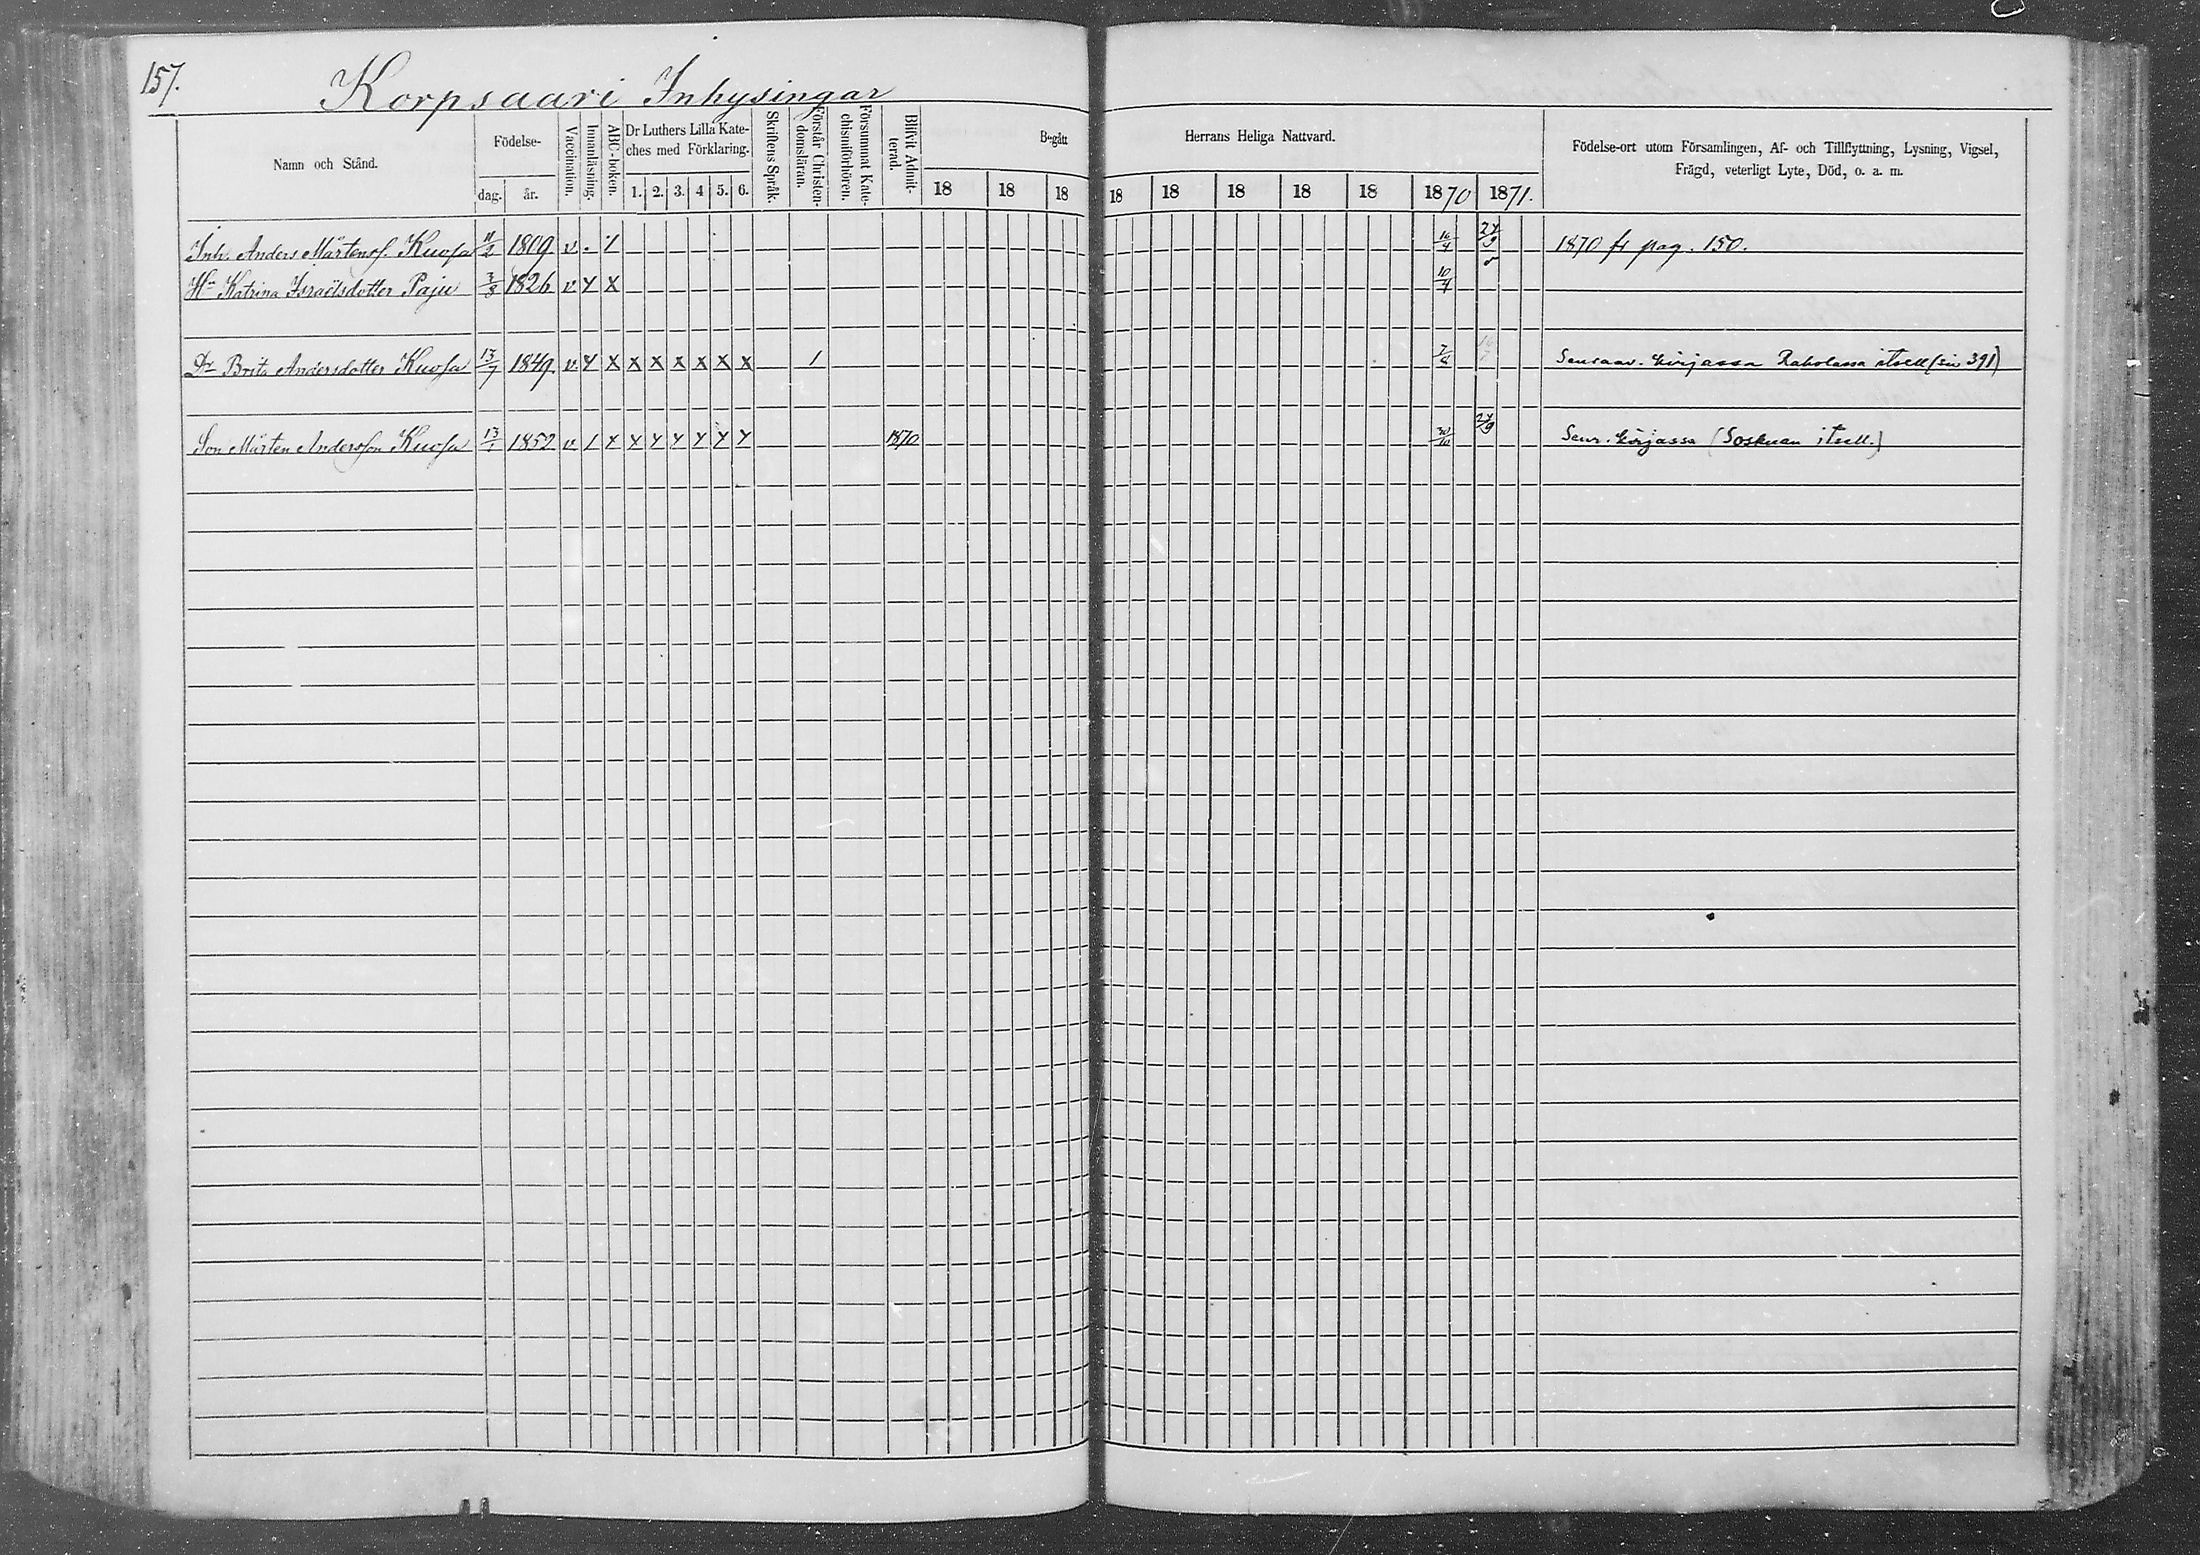 157.
Korpsaari Inhysingar
Namn och Stånd.
Födelse-
dag. år.
Vaccination.
Innanläsning.
ABC-boken.
Dr Luthers Lilla Kate-
ches med Förklaring.
1. 2. 3. 4 5. 6.
Skriftens Språk.
Förstår Christen-
domsläran.
Försummat Kate-
chismiförhören.
Blifvit Admit-
terad.
Begått Herrans Heliga Nattvard.
18 18 18 18 18 18 18 18 1870 1871.
Födelse-ort utom Församlingen, Af- och Tillflyttning, Lysning, Vigsel,
Frägd, veterligt Lyte, Död, o. a. m.
Inh. Anders Mårtens. Kuosa 11/2 1809 v . 24/9 1870 fr pag. 150.
Hu Katrina Israëlsdotter Paju 3/8 1826 v Y X 10/4
Dr Brita Andersdotter Kuosa 13/7 1849 v Y X X X X X X X 1 7/8 Seuraav. kirjassa itsell (siv 391)
Son Mårten Andersson Kuosa 1852 v 1 Y Y Y Y Y Y Y 1870 30/10 24/9 Seur. kirjassa (Soskuan itsell.)